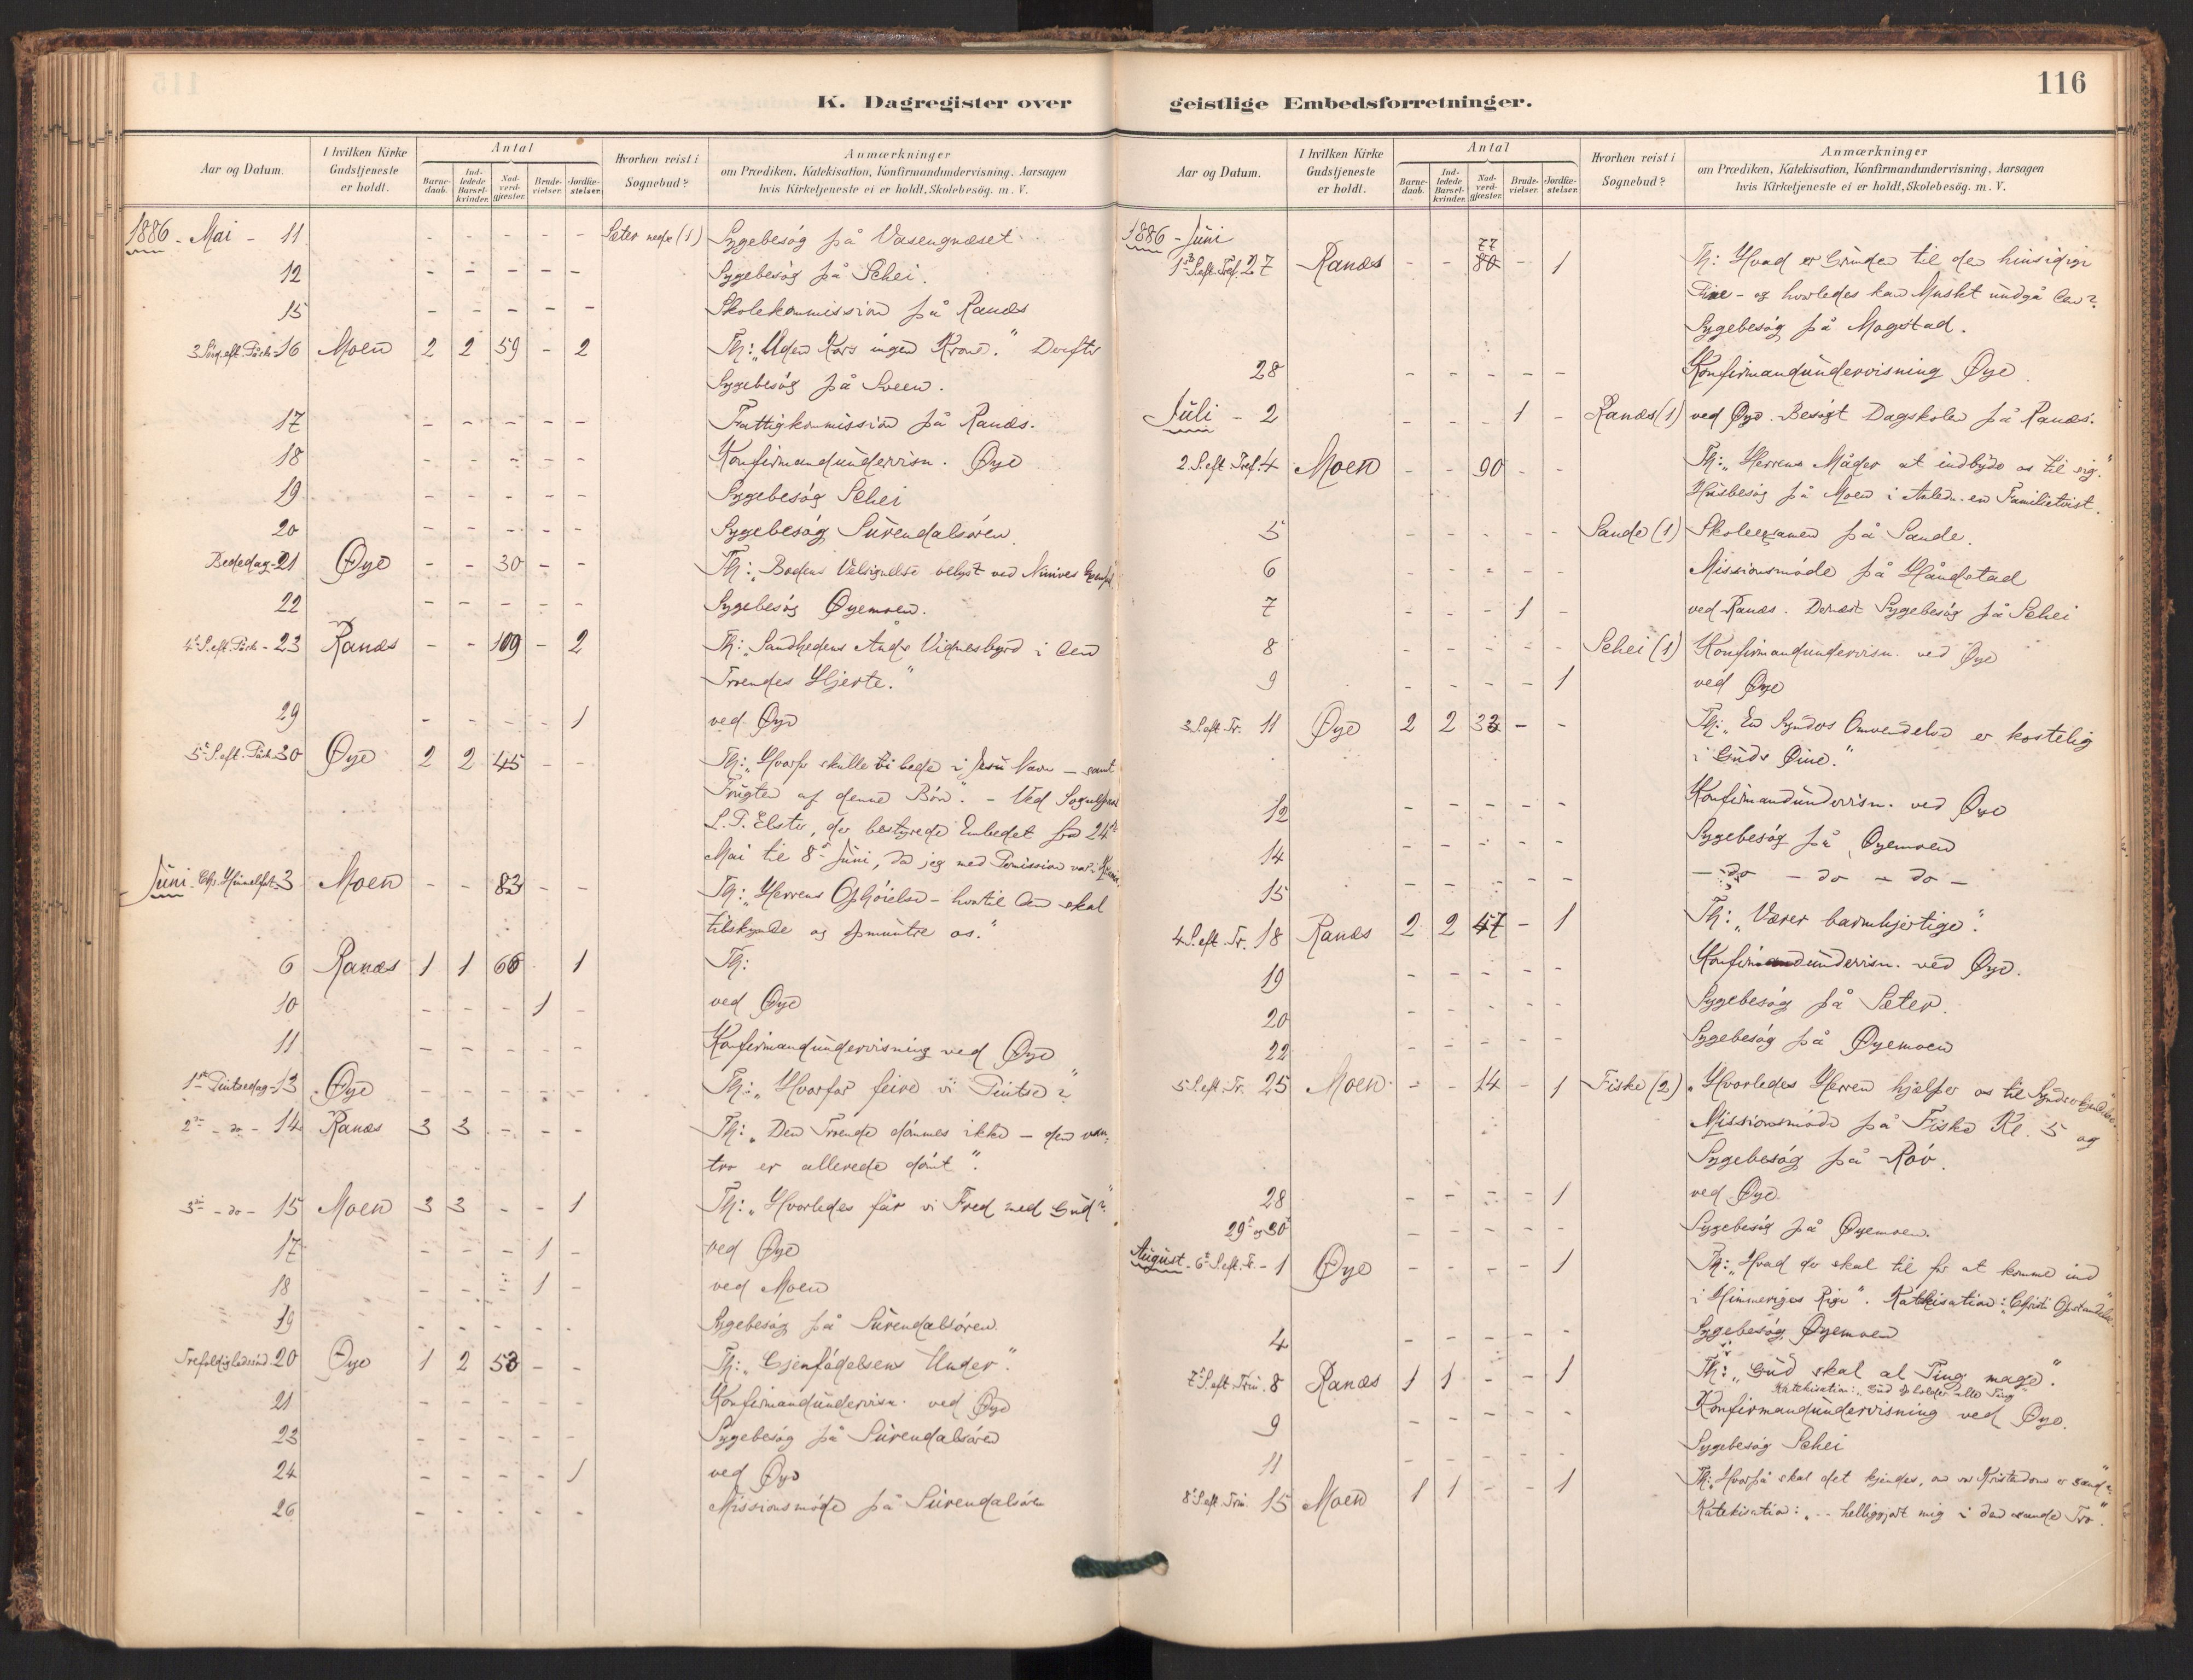 K. Dagregister over
Aar og Datum. I hvilken Kirke Gudstjeneste er holdt. Antal Barnedaab. Indledede Barselkvinder. Nadverdgjæster. Brudevielser. Jordfæstelser. Hvorhen reist i Sognebud? Anmærkninger om Prædiken, Katekisation, Konfirmandundervisning, Aarsagen hvis Kirketjeneste ei er holdt, Skolebesög. m. V.
1886 - Mai - 11 - - - - - Sæter nedre (1) Sygebesög på Vasengnæset
12 - - - - - Sygebesög på Schei.
15 - - - - - Skolekommission på Ranæs
3 Sönd. eft. Påsk. 16 Moen 2 2 59 - 2 Th: „Uden Kors ingen Krone." Derefter
Sygebesög på Sveen.
17 - - - - - Fattigkommission på Ranæs.
18 - - - - - Konfirmandundervisn. Øye
19 - - - - - Sygebesög Schei
20 - - - - - Sygebesög Surendalsören.
Bededag - 21 Øye - - 30 - - Th: „Bodens Velsignelse belyst ved Ninives
22 - - - - - Sygebesög Øyemoen.
4e S. eft. Påsk - 23 Ranæs - - 109 - 2 Th: „Sandhedens Ånds Vidnesbyrd i den
Troendes Hjerte."
29 - - - - 1 ved Øye
5e S. eft. Påsk. 30 Øye 2 2 45 - - Th: „Hvorfor skulle vi bede i Jesu Navn - samt
Frugten af denne Bön". - Ved Sognepræst
L. P. Elster, der bestyrede Embedet fra 24de
Mai til 8de Juni, da jeg med Permission var
Juni Chr. Himmelfart 3 Moen - - 83 - - Th: „Herrens Ophöielse - hvortil den skal
tilskynde og opmuntre os."
6 Ranæs 1 1 66 1 Th:
10 - - - 1 - ved Øye
11 - - - - - Konfirmandundervisning ved Øye
1ste Pintsedag - 13 Øye - - - - - Th: „Hvorfor feire vi Pintse?"
2den - do - 14 Ranæs 3 3 - - - Th: „Den Troende dömmes ikke - den van-
tro er allerede dömt".
3die - do - 15 Moen 3 3 - - 1 Th: „Hvorledes får vi Fred med Gud?"
17 - - - 1 - ved Øye
18 - - - 1 - ved Moen
19 - - - - - Sygebesög på Surendalsören.
Trefoldighedssönd. 20 Øye 1 2 53 - - Th: „Gjenfödelsens Under".
21 - - - - - Konfirmandundervisn. ved Øye
23 - - - - - Sygebesög på Surendalsören
24 - - - - 1 ved Øye
26 - - - - - Missionsmöde på Surendalsören
116
geistlige Embedsforretninger.
Aar og Datum. I hvilken Kirke Gudstjeneste er holdt. Antal Barnedaab. Indledede Barselkvinder. Nadverdgjæster. Brudevielser. Jordfæstelser. Hvorhen reist i Sognebud? Anmærkninger om Prædiken, Katekisation, Konfirmandundervisning, Aarsagen hvis Kirketjeneste ei er holdt, Skolebesög. m. V.
1886 - Juni
1ste S. eft. Tref. 27 Ranæs - - 77 80 - 1 Th: Hvad er Grunden til den hinsidige
Pine - og hvorledes kan Mnskt undgå den?
Sygebesög på Mogstad.
28 - - - - - Konfirmandundervisning Øye
Juli - 2 - - - 1 - Ranæs (1) ved Øye. Besögt Dagskolen på Ranæs.
2. S. eft. Tref. 4 Moen - - 90 - - Th: „Herrens Måder at indbyde os til sig."
Husbesög på Moen i Anledn. en Familietvist.
5 - - - - - Sande (1) Skoleexamen på Sande.
6 Missionsmöde på Håndstad
7 - - - 1 - ved Ranæs. Dernæst Sygebesög på Schei
8 - - - - - Schei (1) Konfirmandundervisn. ved Øye
9 - - - - 1 ved Øye
3 S. eft. Tr. 11 Øye 2 2 33 - - Th: „En Synders Omvendelse er kostelig
i Guds Øine."
12 - - - - - Konfirmandundervisn. ved Øye
14 - - - - - Sygebesög på Øyemoen
15 - - - - - - do - do - do -
4 S. eft. Tr. 18 Ranæs 2 2 47 - 1 Th: „Værer barmhjertige".
19 - - - - - Konfirmandundervisn. ved Øye.
20 - - - - - Sygebesög på Sæter.
22 - - - - - Sygebesög på Øyemoen
5 S. eft. Tr. 25 Moen - - 14 - 1 Fiske (2) „Hvorledes Herren hjælper os til Synderkjendelse."
Missionsmöde på Fiske Kl. 5 og
Sygebesög på Röv.
28 - - - - 1 ved Øye
29de og 30te - - - - - Sygebesög på Øyemoen.
August - 6te S. eft. Tr. - 1 Øye - - - - 1 Th: „Hvad der skal til for at komme ind
i Himmeriges Rige". Katekisation: „Christi Opstandelse."
4 - - - - - Sygebesög Øyemoen
7de S. eft. Trin. 8 Ranæs 1 1 - - 1 Th: „Gud skal al Ting mage".
Katekisation: „Gud opholder alle Ting"
9 - - - - - Konfirmandundervisning ved Øye.
11 - - - - - Sygebesög Schei
8de S. eft. Trin. 15 Moen 1 1 - - 1 Th: „Hvorpå skal det kjendes, om vor Kristendom er sand?"
Katekisation: „.. helliggjort mig i den sande Tro".